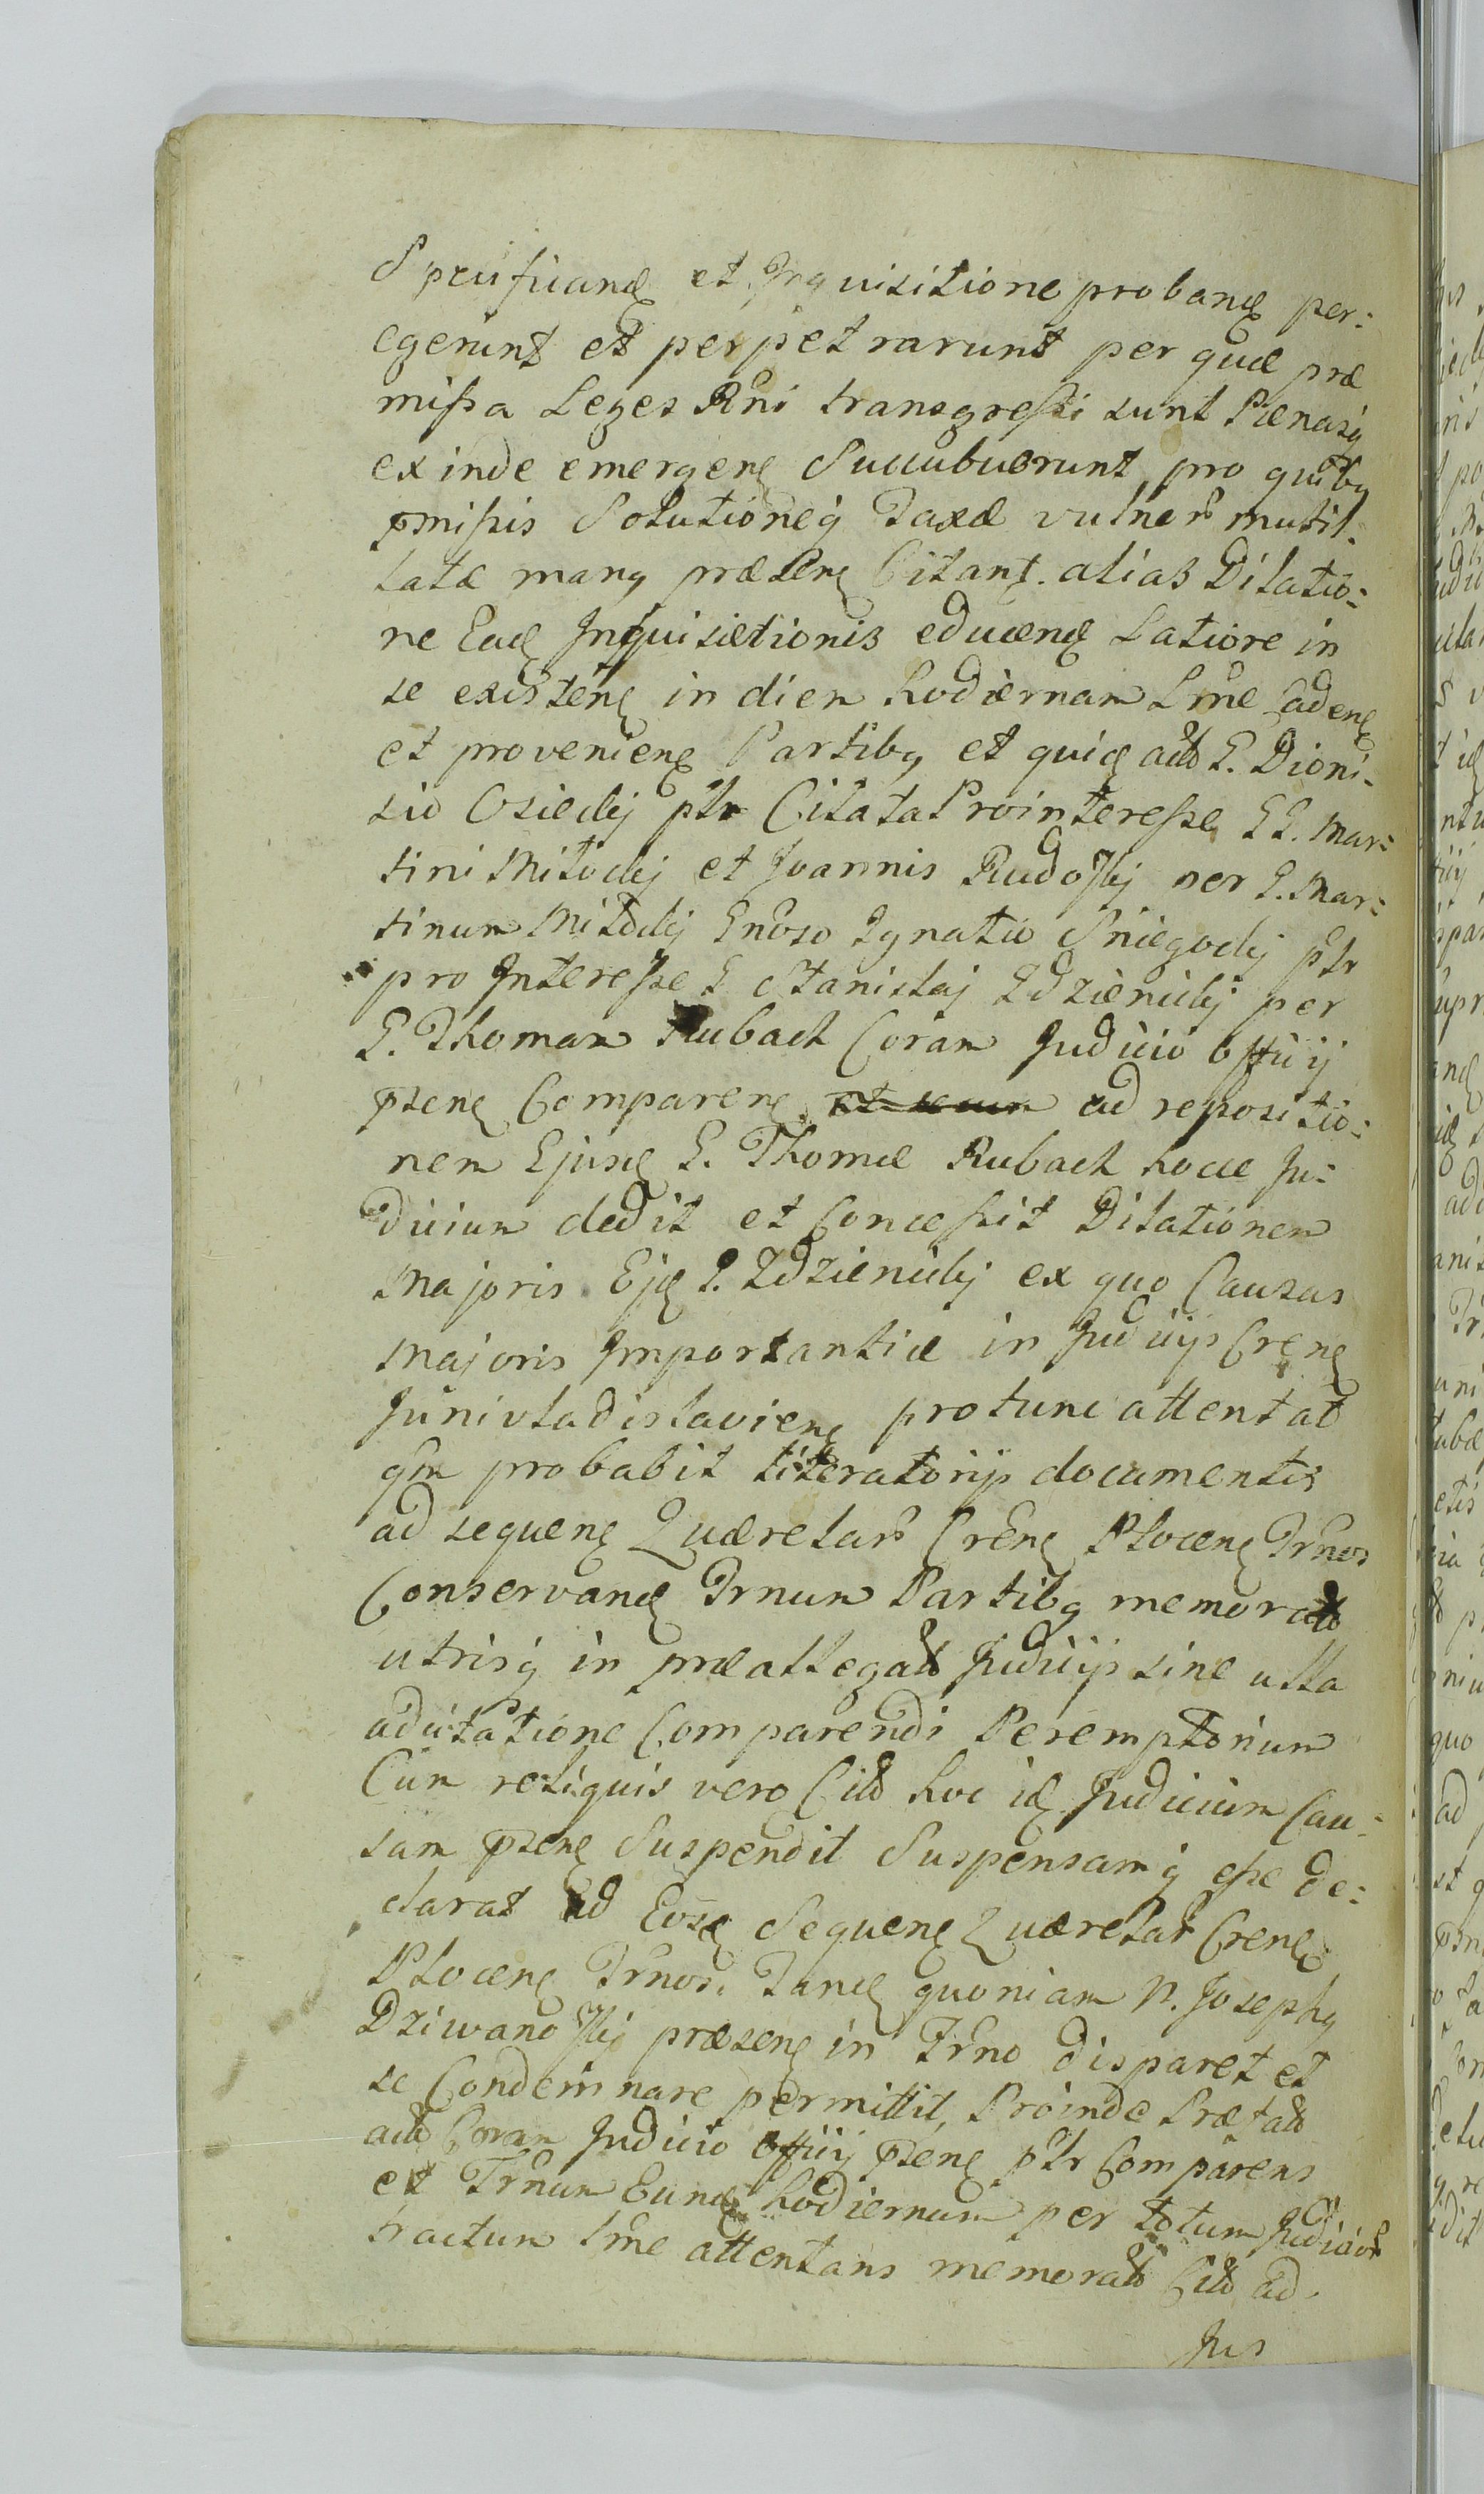 Specificand et Inquisitione proband per=
egerunt et perpetrarunt per quæ præ
missa Leges Rni transgressi sunt Pænasq
exinde emergen Succubuerunt, pro quibq
pmissis Solutioneq Taxæ vulner mutil=
latæ manq præsen Citant. alias Dilatio=
ne Ead Inquisitionis educend Latiore in
se existen in diem hodiernam Lrme Caden
et provenien Partibq et quid actt G. Dioni=
sio Osiecki ptr Citata Prointeresse GG. Mar=
tini Milocki et Joannis Rudoski ner G. Mar=
tinum Milocki Gnroso Ignatio Sniegocki ptr
pro Interesse G Stanislaj Zdzienicki per
G. Thomam Rubach Coram Judicio Officij
psen Comparen ad repositio=
nem Ejusd G. Thomæ Rubach hocce Ju=
dicium dedit et Concessit Dilationem
Majoris Ejd G. Zdzienicki ex quo Causas
Majoris Importantiæ in Judicijs Cren
Junivladislavien protunc attentat
qm probabit literatorijs documentis
ad sequen Quærelar Cren Plocen Trnos
Conservand Trnum Partibq memoratt
utrisq in præallegatt Judicijs sine ulla
adcitatione Comparendi Peremptorium
Cum reliquis vero Citt hoc id Judicium Cau=
sam psen Suspendit Suspensamq esse de=
clarat ad Eosd Sequen Quærelar Cren
Plocen Trnos. Tand quoniam N. Josephq
Dziwanoski præsen in Trno disparet et
se Condemnare permittit, Proinde Prætatt
actt Coram Judicio Officij psen ptr Comparens
et Trnum Eund hodiernum per totum Judicior
tractum lrme attentans memoratt Citt ad
Jus